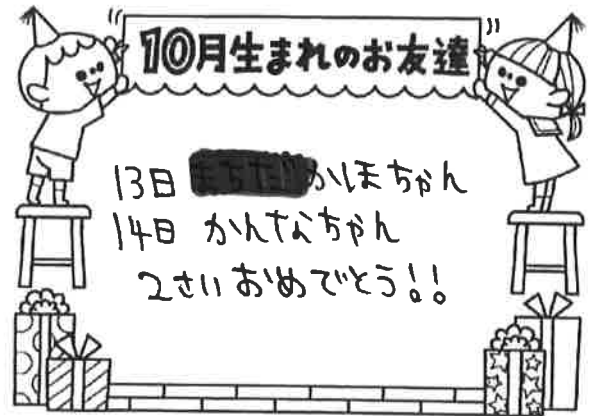 10月生まれのお友達
13日 かほちゃん
14日 かんなちゃん
2さいおめでとう!!